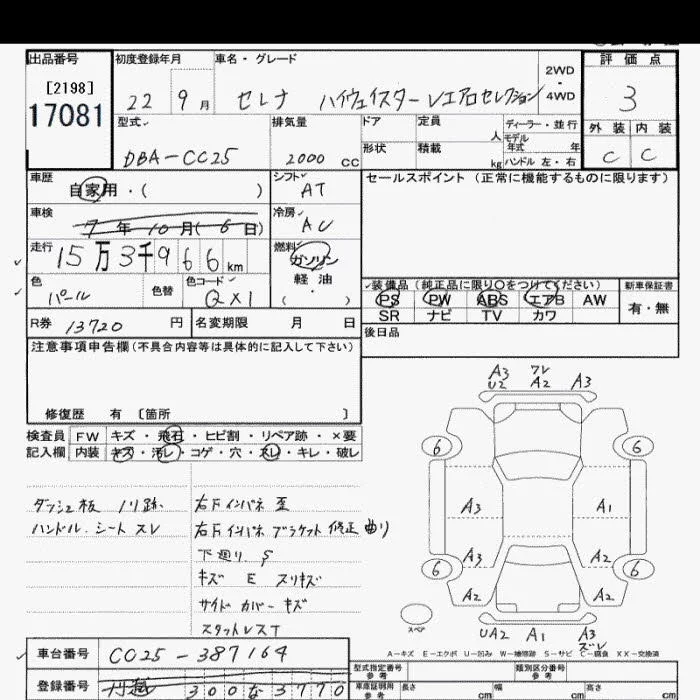 出品番号
[2198]
17081
初度登録年月
22 9 月
車名・グレード
セレナ ハイウェイスター Vエアロセレクション
2WD
・
4WD
評価点
3
外装 内装
C C
型式
DBA-CC25
排気量
2000 CC
ドア
定員 人
形状
積載 kg
ディーラー・並行
モデル年式 年
ハンドル 左・右
車歴
自家用・( )
シフト
AT
セールスポイント(正常に機能するものに限ります)
車検
7年10月(6日)
冷房
走行
15万3千966km
燃料
ガソリン
軽油
( ・ )
色
パール
色替
色コード
QX1
装備品(純正品に限り○をつけてください)
PS PW ABS エアB AW
SR ナビ TV カワ
新車保証書
有・無
R券 13720 円
名変期限 月 日
後日品
注意事項申告欄(不具合内容等は具体的に記入して下さい)
修復歴 有 〔箇所 〕
検査員
記入欄
FW キズ・飛石・ヒビ割・リペア跡・×要
内装 キズ・汚レ・コゲ・穴・スレ・キレ・破レ
ダッシュ板 ノリ跡
ハンドル、シート スレ
右Fインパネ 歪
右Fインパネ ブラケット 修正 曲り
下廻り S
キズ E スリキズ
サイド カバー キズ
スタットレスT
A3 ワレ
U2 A2 A3
6 6
A3 A1
A3 A2
6 6
A2 A2
スペア
UA2 A1 A3
ズレ
A-キズ E-エクボ U-凹み W-補修跡 S-サビ C-腐食 XX-交換済
車台番号 CC25-387164
登録番号
300 3770
型式指定番号
参考
類別区分番号
参考
車庫証明用
参考
長さ cm
幅 cm
高さ cm